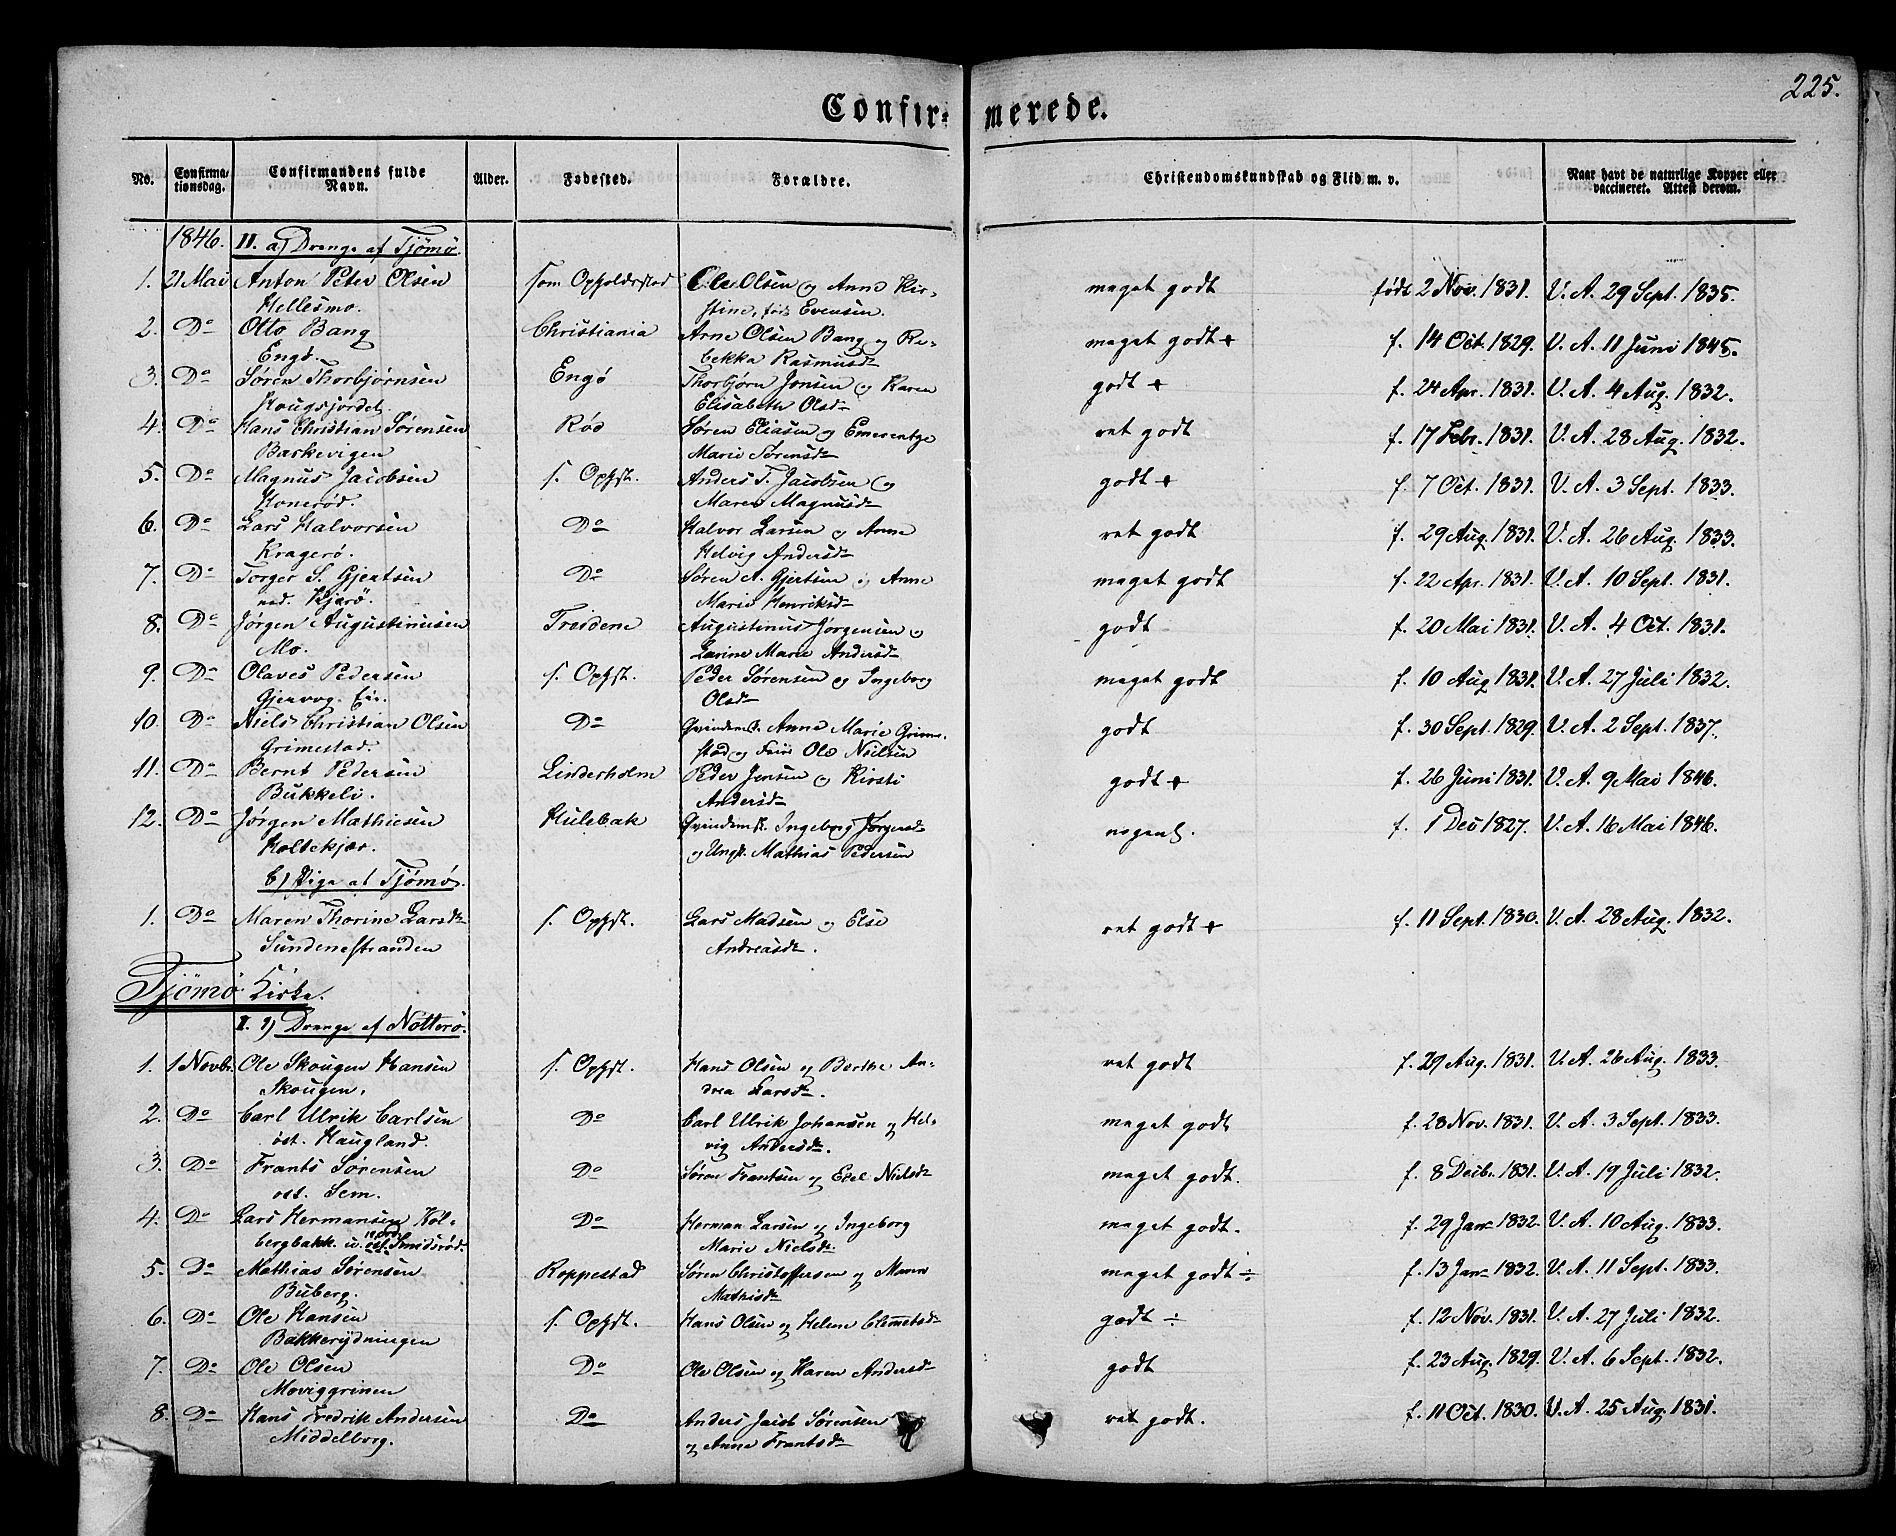 225.
Confirmerede.
No. Confirmationsdag. Confirmandens fulde Navn. Alder. Fødested. Forældre. Christendomskundskab og Flid m. v. Naar havt de naturlige Kopper eller vaccineret. Attest derom.
1846. II. a) Drenge af Tjømø.
1. 21 Mai Anton Peter Olsen som Opholdsstad Ole Olsen og Anne Kir- meget godt født 2 Nov. 1831. V. A. 29 Sept. 1835.
Hellesmo. stine, født Evensen.
2. Do Otto Bang Christiania Arne Olsen Bang og Re- meget godt + f. 14 Oct. 1829. V. A. 11 Juni 1845.
Engø. bekka Rasmusd.
3. Do Søren Thorbjørnsen Engø Thorbjørn Jensen og Karen godt + f. 24 Apr. 1831. V. A. 4 Aug. 1832.
Hougsjordet. Elisabeth Olsd.
4. Do Hans Christian Sørensen Røo Søren Eliasen og Emerentze ret godt f. 17 Febr. 1831. V. A. 28 Aug. 1832.
Baskevigen Marie Sørensd.
5. Do Magnus Jacobsen s. Ophst. Anders T. Jacobsen og godt + f. 7 Oct. 1831. V. A. 3 Sept. 1833.
Honerød. Maren Magnusd.
6. Do Lars Halvorsen Do Halvor Larsen og Anne ret godt f. 29 Aug. 1831. V. A. 26 Aug. 1833.
Kragerø. Helvig Andersd.
7. Do Torger S. Gjertsen Do Søren A. Gjertsen og Anne meget godt f. 22 Apr. 1831. V. A. 10 Sept. 1831.
ned. Kjærø. Marie Henriksd.
8. Do Jørgen Augustinusen Treidene Augustinus Jørgensen og godt f. 20 Mai 1831. V. A. 4 Oct. 1831.
Mo. Larine Marie Andersd.
9. Do Olaves Pedersen s. Ophst. Peder Sørensen og Ingeborg meget godt f. 10 Aug 1831. V. A. 27 Juli 1832.
Gjervog. Eie. Olsd.
10. Do Niels Christian Olsen Do Qvindem. Anne Marie Grime- godt f. 30 Sept. 1829. V. A. 2 Sept. 1837.
Grimestad. stad og Ole Neilsen
11. Do Bernt Pedersen Linderholm Peder Jensen og Kirsti godt + f. 26 Juni 1831. V. A. 9 Mai 1846.
Bukkeli. Andersd.
12. Do Jørgen Mathiesen Hulebak Qvindemst. Ingeborg Jørgensd. f. 1 Dec 1827. V. A. 16 Mai 1846.
Holtekjær. og Ungk. Mathias Pedersen
b) Pige af Tjømø.
1. Do Maren Thorine Larsd. s. Ophst. Lars Madsen og Else ret godt + f. 11 Sept. 1830. V. A. 28 Aug. 1832.
Sundenestranden Andreasd.
Tjømø Kirke.
I. 1) Drenge af Nøtterø.
1. 1 Novbr. Ole Skougen Hansen s. Ophst. Hans Olsen og Berthe An- ret godt f. 29 Aug. 1831. V. A. 26 Aug. 1833.
Skougen. drea Larsd.
2. Do Carl Ulrik Carlsen Do Carl Ulrik Johansen og Hel- meget godt f. 28 Nov. 1831. V. A. 3 Sept. 1833.
øst. Haugland. vig Andersd.
3. Do Frants Sørensen Do Søren Frantsen og Edel Nielsd. meget godt. f. 8 Decbr. 1831. V. A. 19 Juli 1832.
øst. Sem.
4. Do Lars Hermansen Kol- Do Herman Larsen og Ingeborg meget godt. f. 29 Jan. 1832. V. A. 10 Aug. 1833.
bergbakk. u. øst. Smidsrød. Marie Nielsd.
5. Do Mathias Sørensen Roppestad Søren Christoffersen og Maren meget godt ÷ f. 13 Jan. 1832. V. A. 11 Sept. 1833.
Buberg. Mathisd.
6. Do Ole Hansen s. Ophst. Hans Olsen og Helene Clemetsd. godt ÷ f. 12 Nov. 1831. V. A. 27 Juli 1832.
Bakkerydningen
7. Do Ole Olsen Do Ole Olsen og Karen Andersd. godt f. 23 Aug. 1829. V. A. 6 Sept. 1832.
Moviggrinen
8. Do Hans Fredrik Andersen Do Anders Jacob Sørensen ret godt. f. 11 Oct. 1830. V. A. 25 Aug. 1831.
Middelborg. og Anne Frantsd.